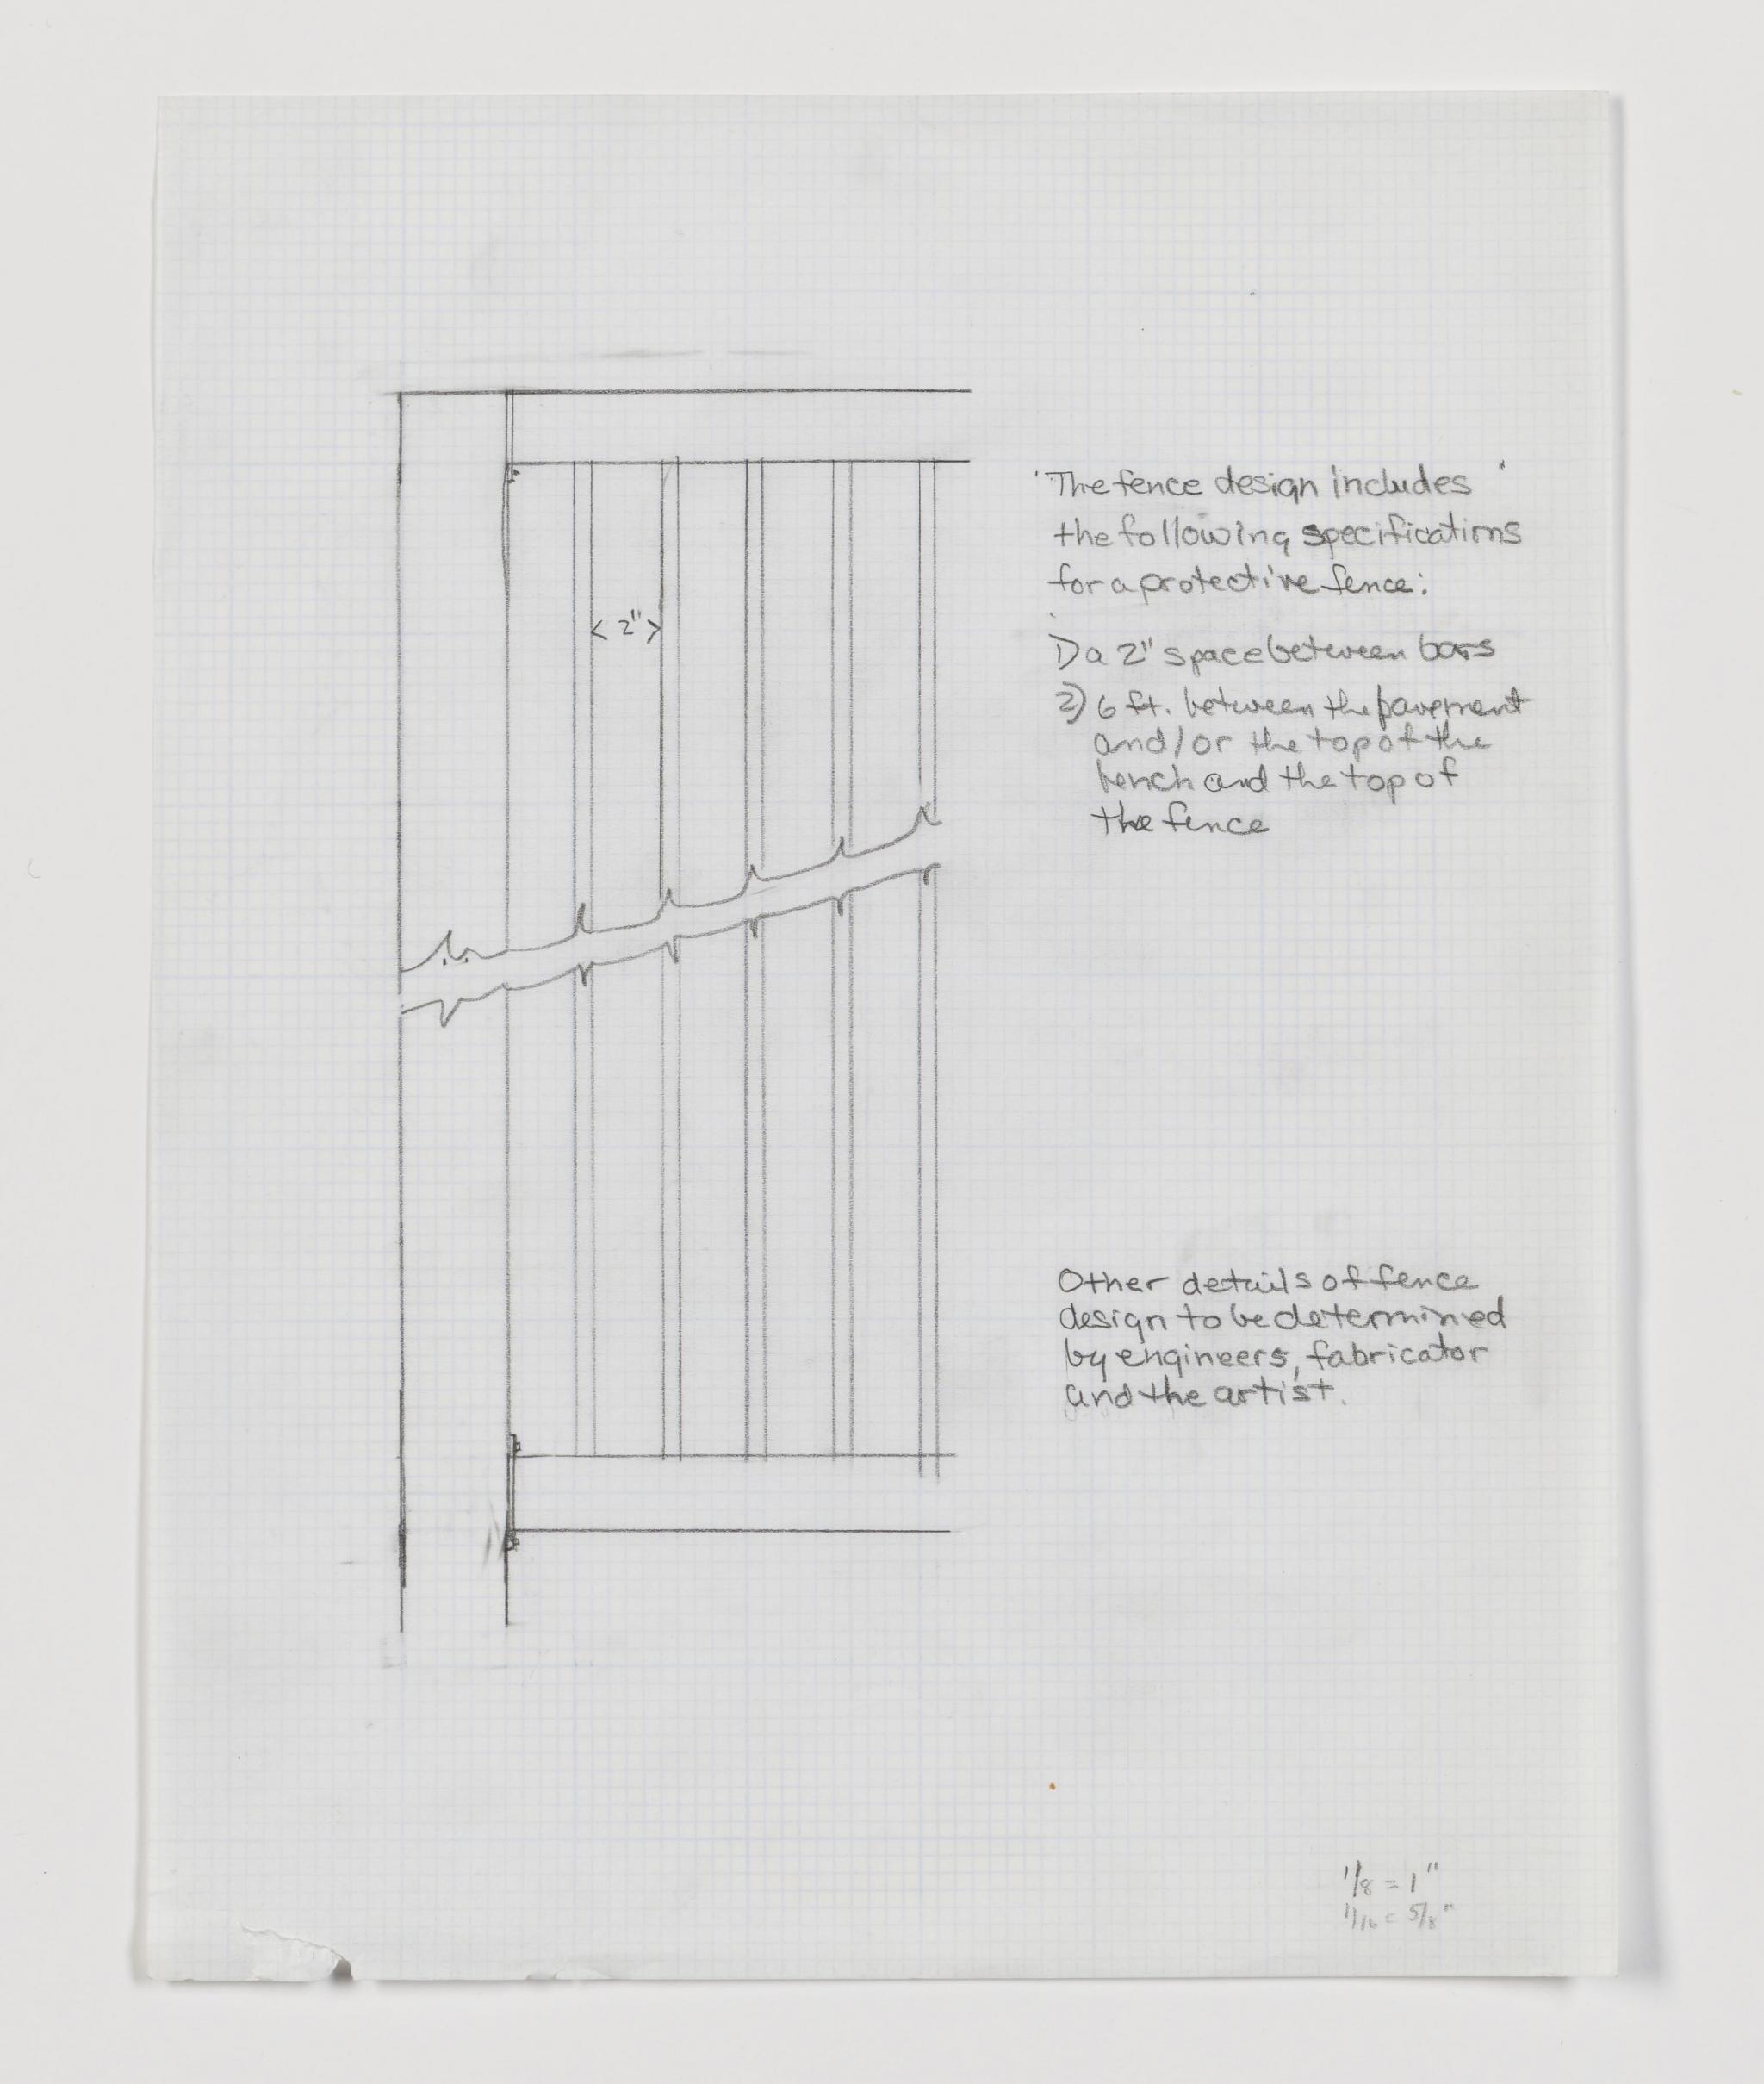 <2">
The fence design includes
the following specifications
for a protective fence:
1) a 2" space between bars
2) 6 ft. between the pavement
and/or the top of the
bench and the top of
the fence
Other details of fence
design to be determined
by engineers, fabricator
and the artist.
1/8 = 1"
1/16 = 5/8"